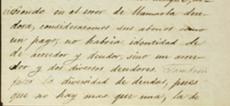 tiendo en el error de llamarla deu-
dora, consideramos sus abonos como
un pago, no habria identidad de
de acreedor y deudor sino un acree-
dor y dos diversos deudores
la diversidad de deudas, pues
que no hay mas que una, la de